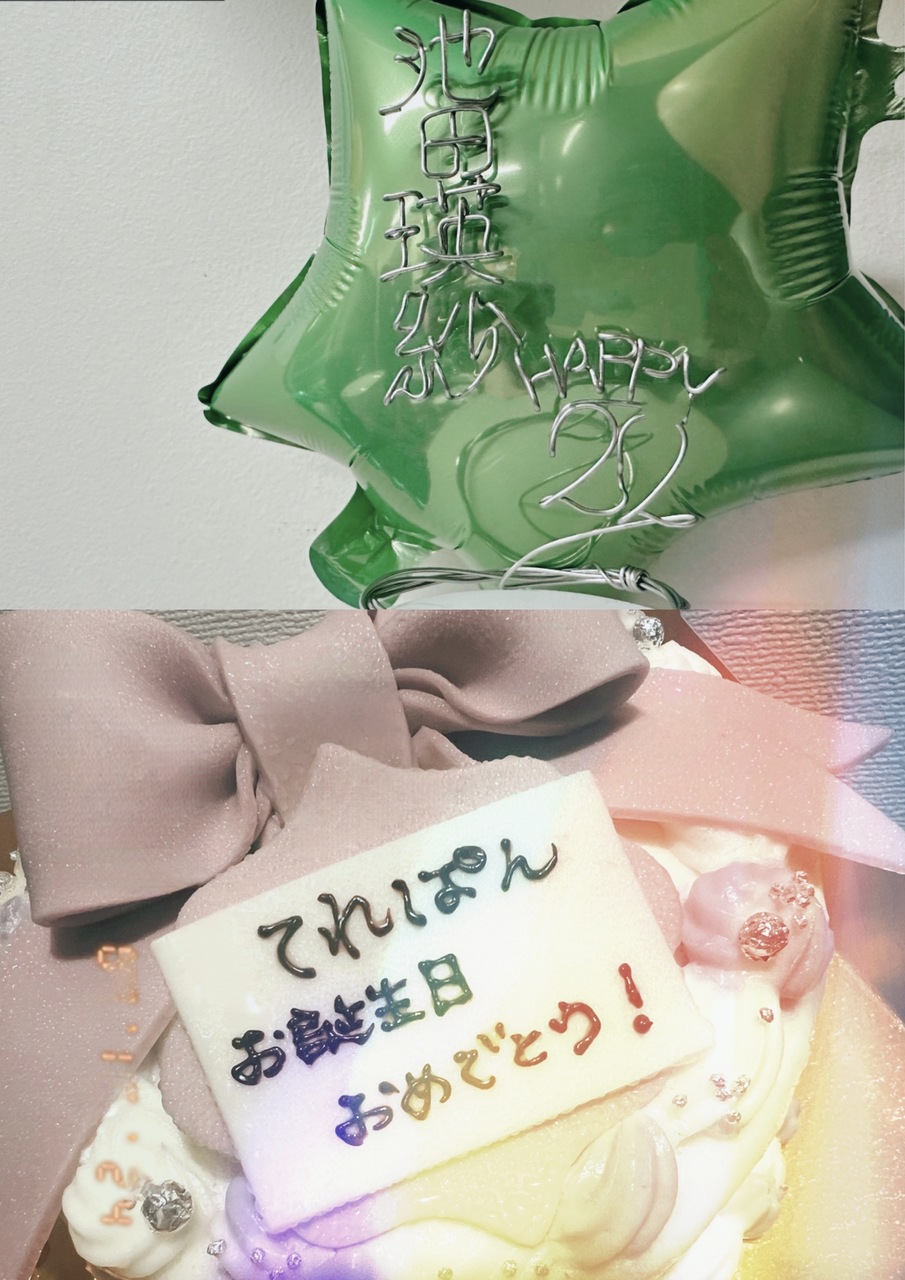 池田瑛紗
HAPPY
22
てれぱん
お誕生日
おめでとう!